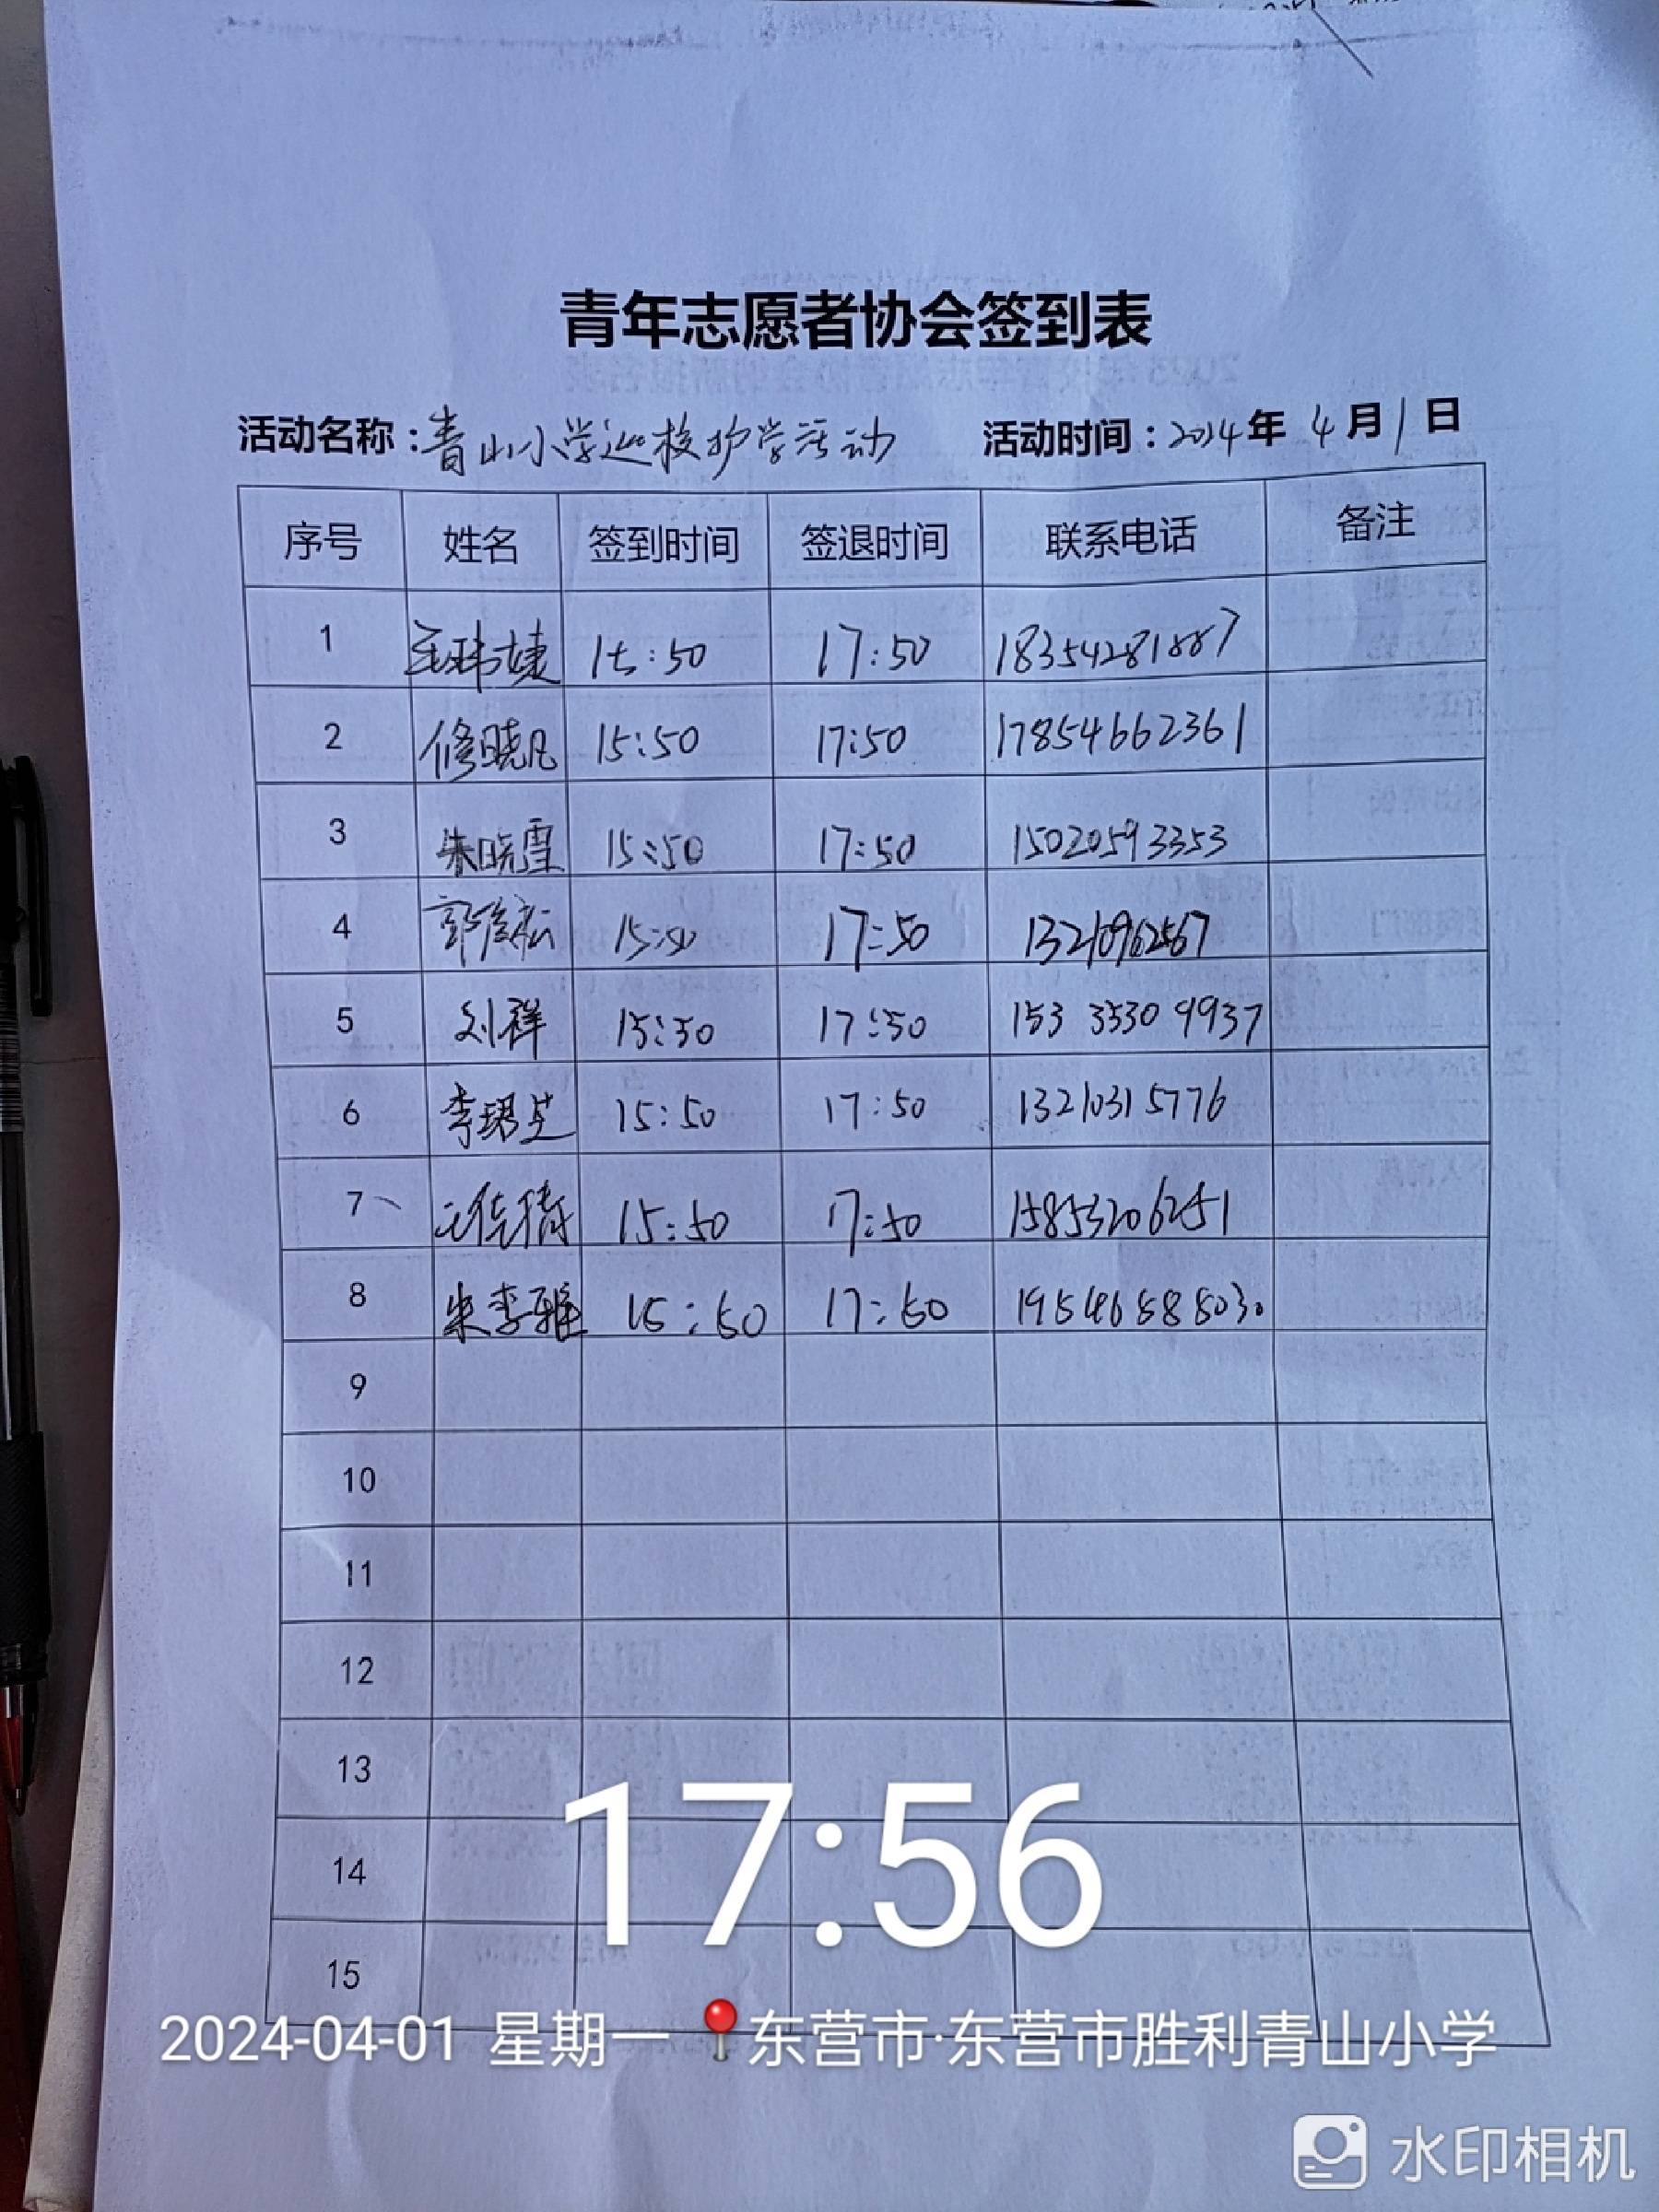 青年志愿者协会签到表
活动名称:青山小学巡校护学活动 活动时间:2024年 4月1日
序号 姓名 签到时间 签退时间 联系电话 备注
1 15:50 17:50 18354281887
2 修晓凡 15:50 17:50 17854662361
3 朱晓雪 15:50 17:50 15020593353
4 15:50 17:50 13210962567
5 刘祥 15:50 17:50 153 3530 9937
6 15:50 17:50 13210315776
7 15:50 17:50 15853206251
8 朱李雅 15:50 17:50 19546588030
9
10
11
12
13
14
15
17:56
2024-04-01 星期一 东营市·东营市胜利青山小学
水印相机